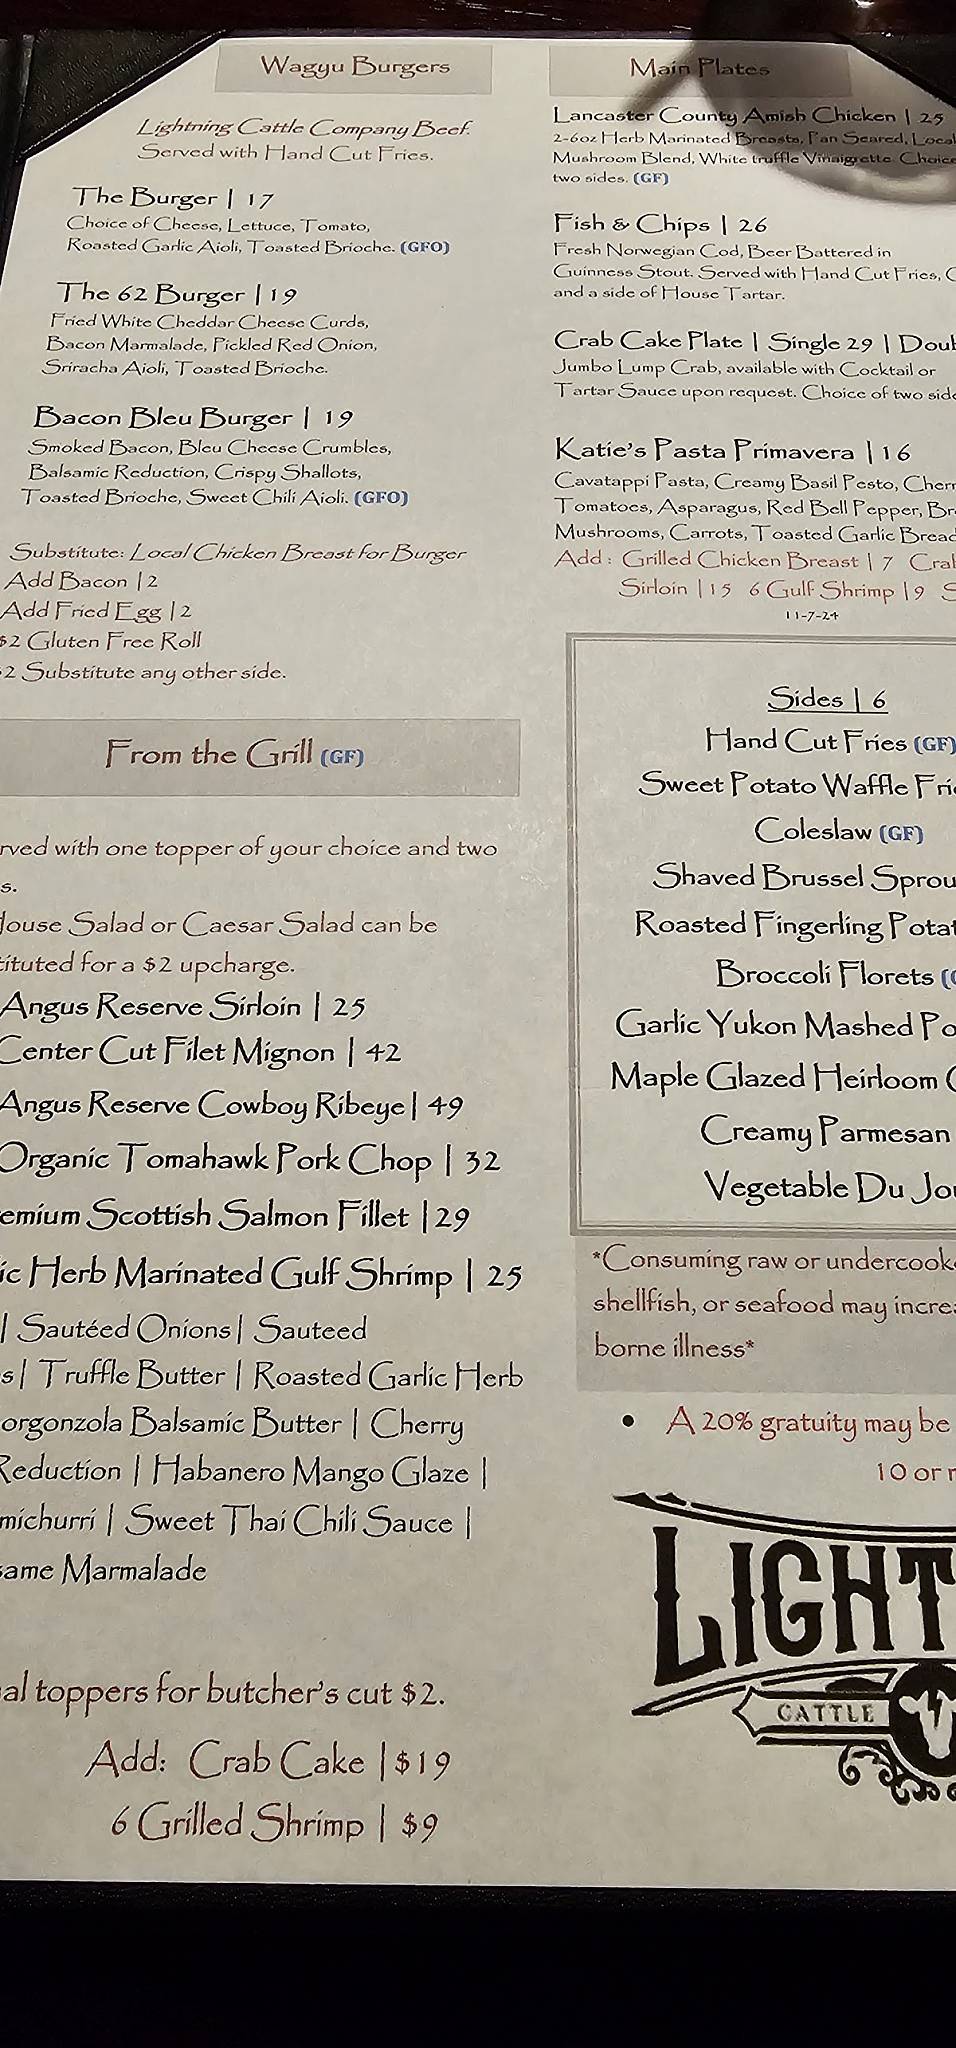 Wagyu Burgers
Lightning Cattle Company Beef.
Served with Hand Cut Fries.
The Burger | 17
Choice of Cheese, Lettuce, Tomato,
Roasted Garlic Aioli, Toasted Brioche. (GFO)
The 62 Burger | 19
Fried White Cheddar Cheese Curds,
Bacon Marmalade, Pickled Red Onion,
Sriracha Aioli, Toasted Brioche.
Bacon Bleu Burger | 19
Smoked Bacon, Bleu Cheese Crumbles,
Balsamic Reduction, Crispy Shallots,
Toasted Brioche, Sweet Chili Aioli. (GFO)
Substitute: Local Chicken Breast for Burger
Add Bacon | 2
Add Fried Egg | 2
$2 Gluten Free Roll
2 Substitute any other side.
From the Grill (GF)
with one topper of your choice and two
House Salad or Caesar Salad can be
for a $2 upcharge.
Angus Reserve Sirloin | 25
Center Cut Filet Mignon | 42
Angus Reserve Cowboy Ribeye | 49
Organic Tomahawk Pork Chop | 32
Scottish Salmon Fillet | 29
Herb Marinated Gulf Shrimp | 25
| Sautéed Onions | Sauteed
| Truffle Butter | Roasted Garlic Herb
Balsamic Butter | Cherry
Reduction | Habanero Mango Glaze |
| Sweet Thai Chili Sauce |
Marmalade
toppers for butcher's cut $2.
Add: Crab Cake | $19
6 Grilled Shrimp | $9
Main Plates
Lancaster County Amish Chicken | 25
2-6oz Herb Marinated Breasts, Pan Seared, Local
Mushroom Blend, White truffle Vinaigrette. Choice
two sides. (GF)
Fish & Chips | 26
Fresh Norwegian Cod, Beer Battered in
Guinness Stout. Served with Hand Cut Fries,
and a side of House Tartar.
Crab Cake Plate | Single 29 |
Jumbo Lump Crab, available with Cocktail or
Tartar Sauce upon request. Choice of two
Katie's Pasta Primavera | 16
Cavatappi Pasta, Creamy Basil Pesto,
Tomatoes, Asparagus, Red Bell Pepper,
Mushrooms, Carrots, Toasted Garlic Bread
Add: Grilled Chicken Breast | 7 Crab
Sirloin | 15 6 Gulf Shrimp | 9
11-7-24
Sides | 6
Hand Cut Fries (GF)
Sweet Potato Waffle
Coleslaw (GF)
Shaved Brussel
Roasted Fingerling
Broccoli Florets
Garlic Yukon Mashed
Maple Glazed Heirloom
Creamy Parmesan
Vegetable Du
*Consuming raw or
shellfish, or seafood may
borne illness*
• A 20% gratuity may be
10 or
LIGHT
CATTLE